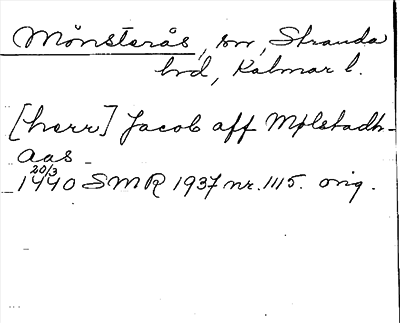 Mönsterås, sn, Stranda
hd, Kalmar l.
[herr] Jacob aff Mølstadh-
aas
20/3
1440 SMR 1937 nr. 1115. orig.